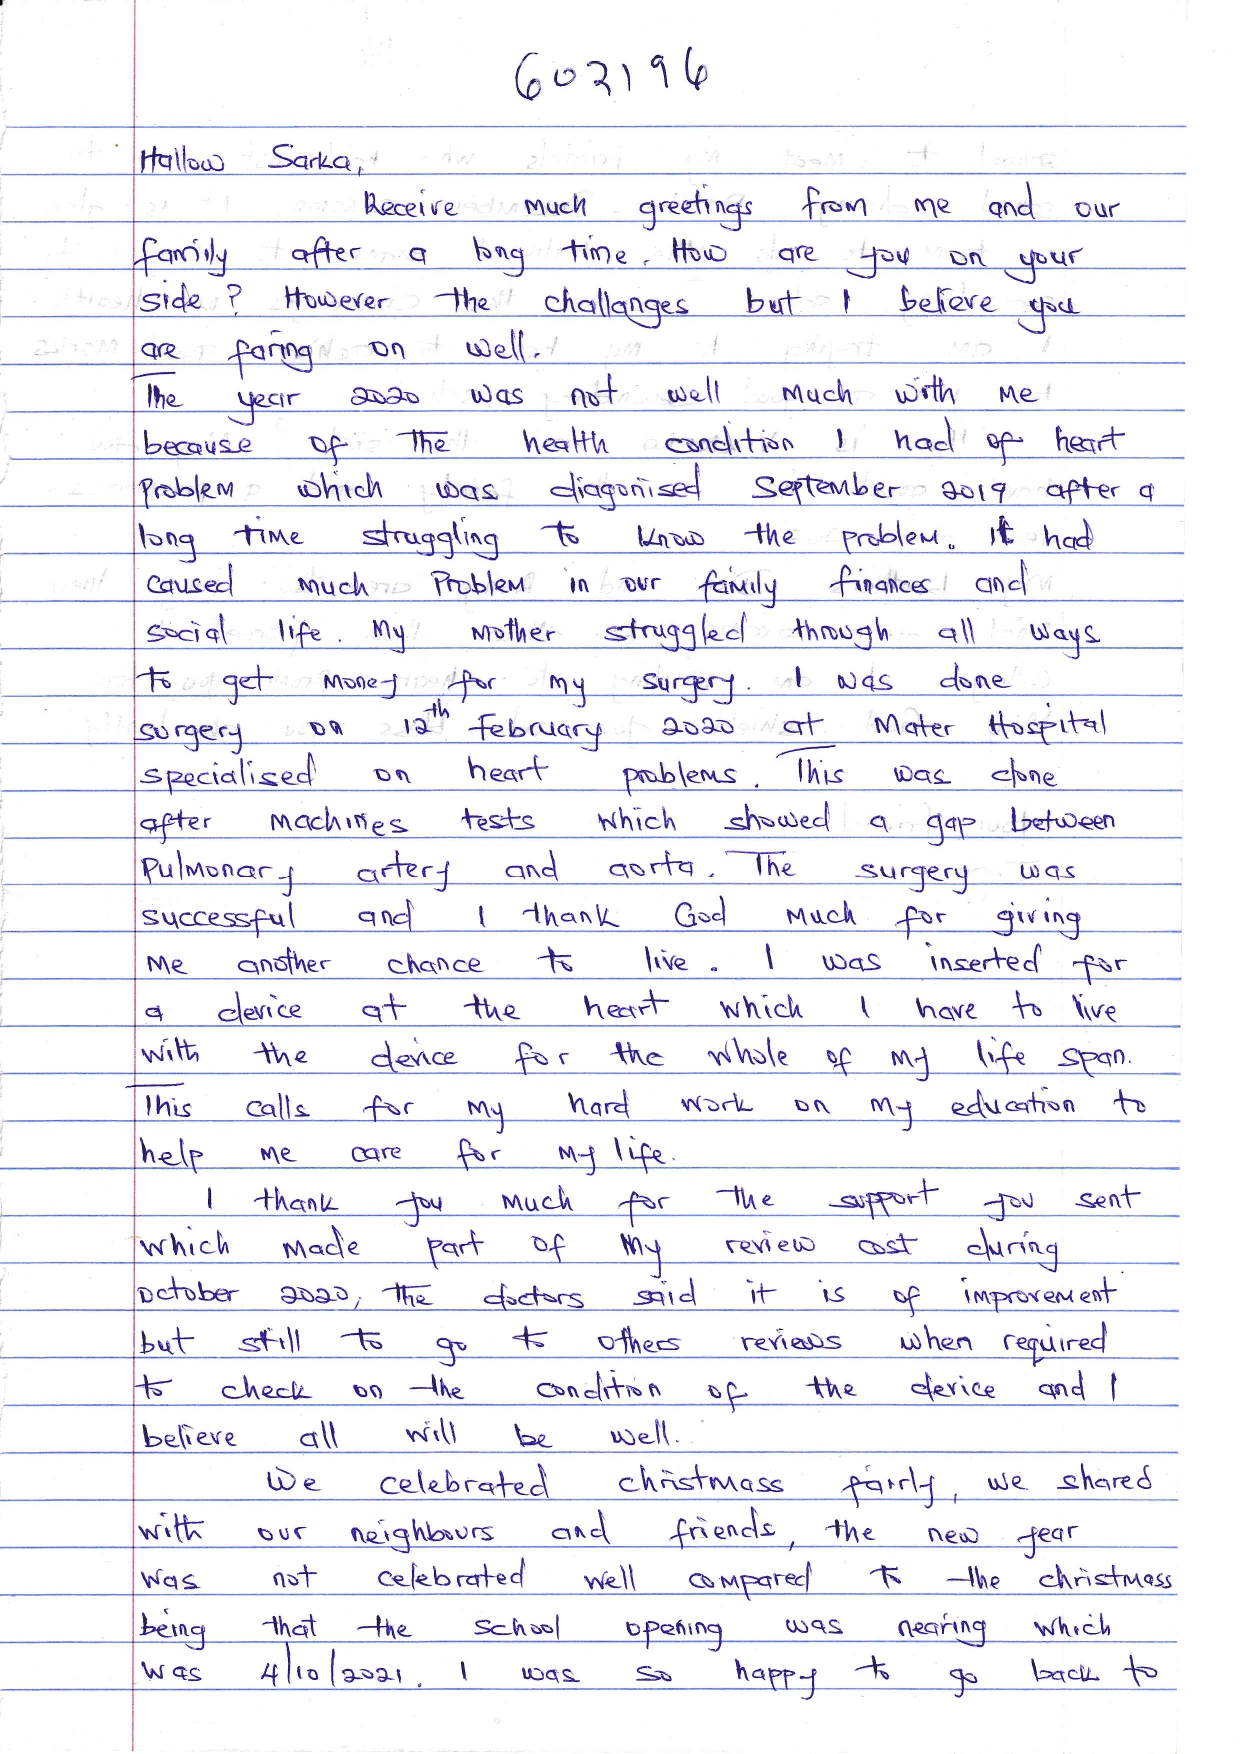 602196
Hallow Sarka,
Receive much greetings from me and our
family after a long time. How are you on your
side? However the challanges but I believe you
are faring on well.
The year 2020 was not well much with me
because of the health condition I had of heart
problem which was diagonised September 2019 after a
long time struggling to know the problem. It had
caused much problem in our family finances and
social life. My mother struggled through all ways
to get money for my surgery. I was done
surgery on 12th February 2020 at Mater Hospital
specialised on heart problems. This was done
after machines tests which showed a gap between
pulmonary artery and aorta. The surgery was
successful and I thank God much for giving
me another chance to live. I was inserted for
a device at the heart which I have to live
with the device for the whole of my life span.
This calls for my hard work on my education to
help me care for my life.
I thank you much for the support you sent
which made part of my review cost during
october 2020, the doctors said it is of improvement
but still to go to others reviews when required
to check on the condition of the device and I
believe all will be well.
We celebrated christmass fairly, we shared
with our neighbours and friends, the new year
was not celebrated well compared to the christmass
being that the school opening was nearing which
was 4/10/2021. I was so happy to go back to